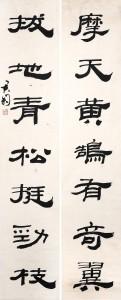 摩天黄鵠有奇翼
拔地青松挺勁枝